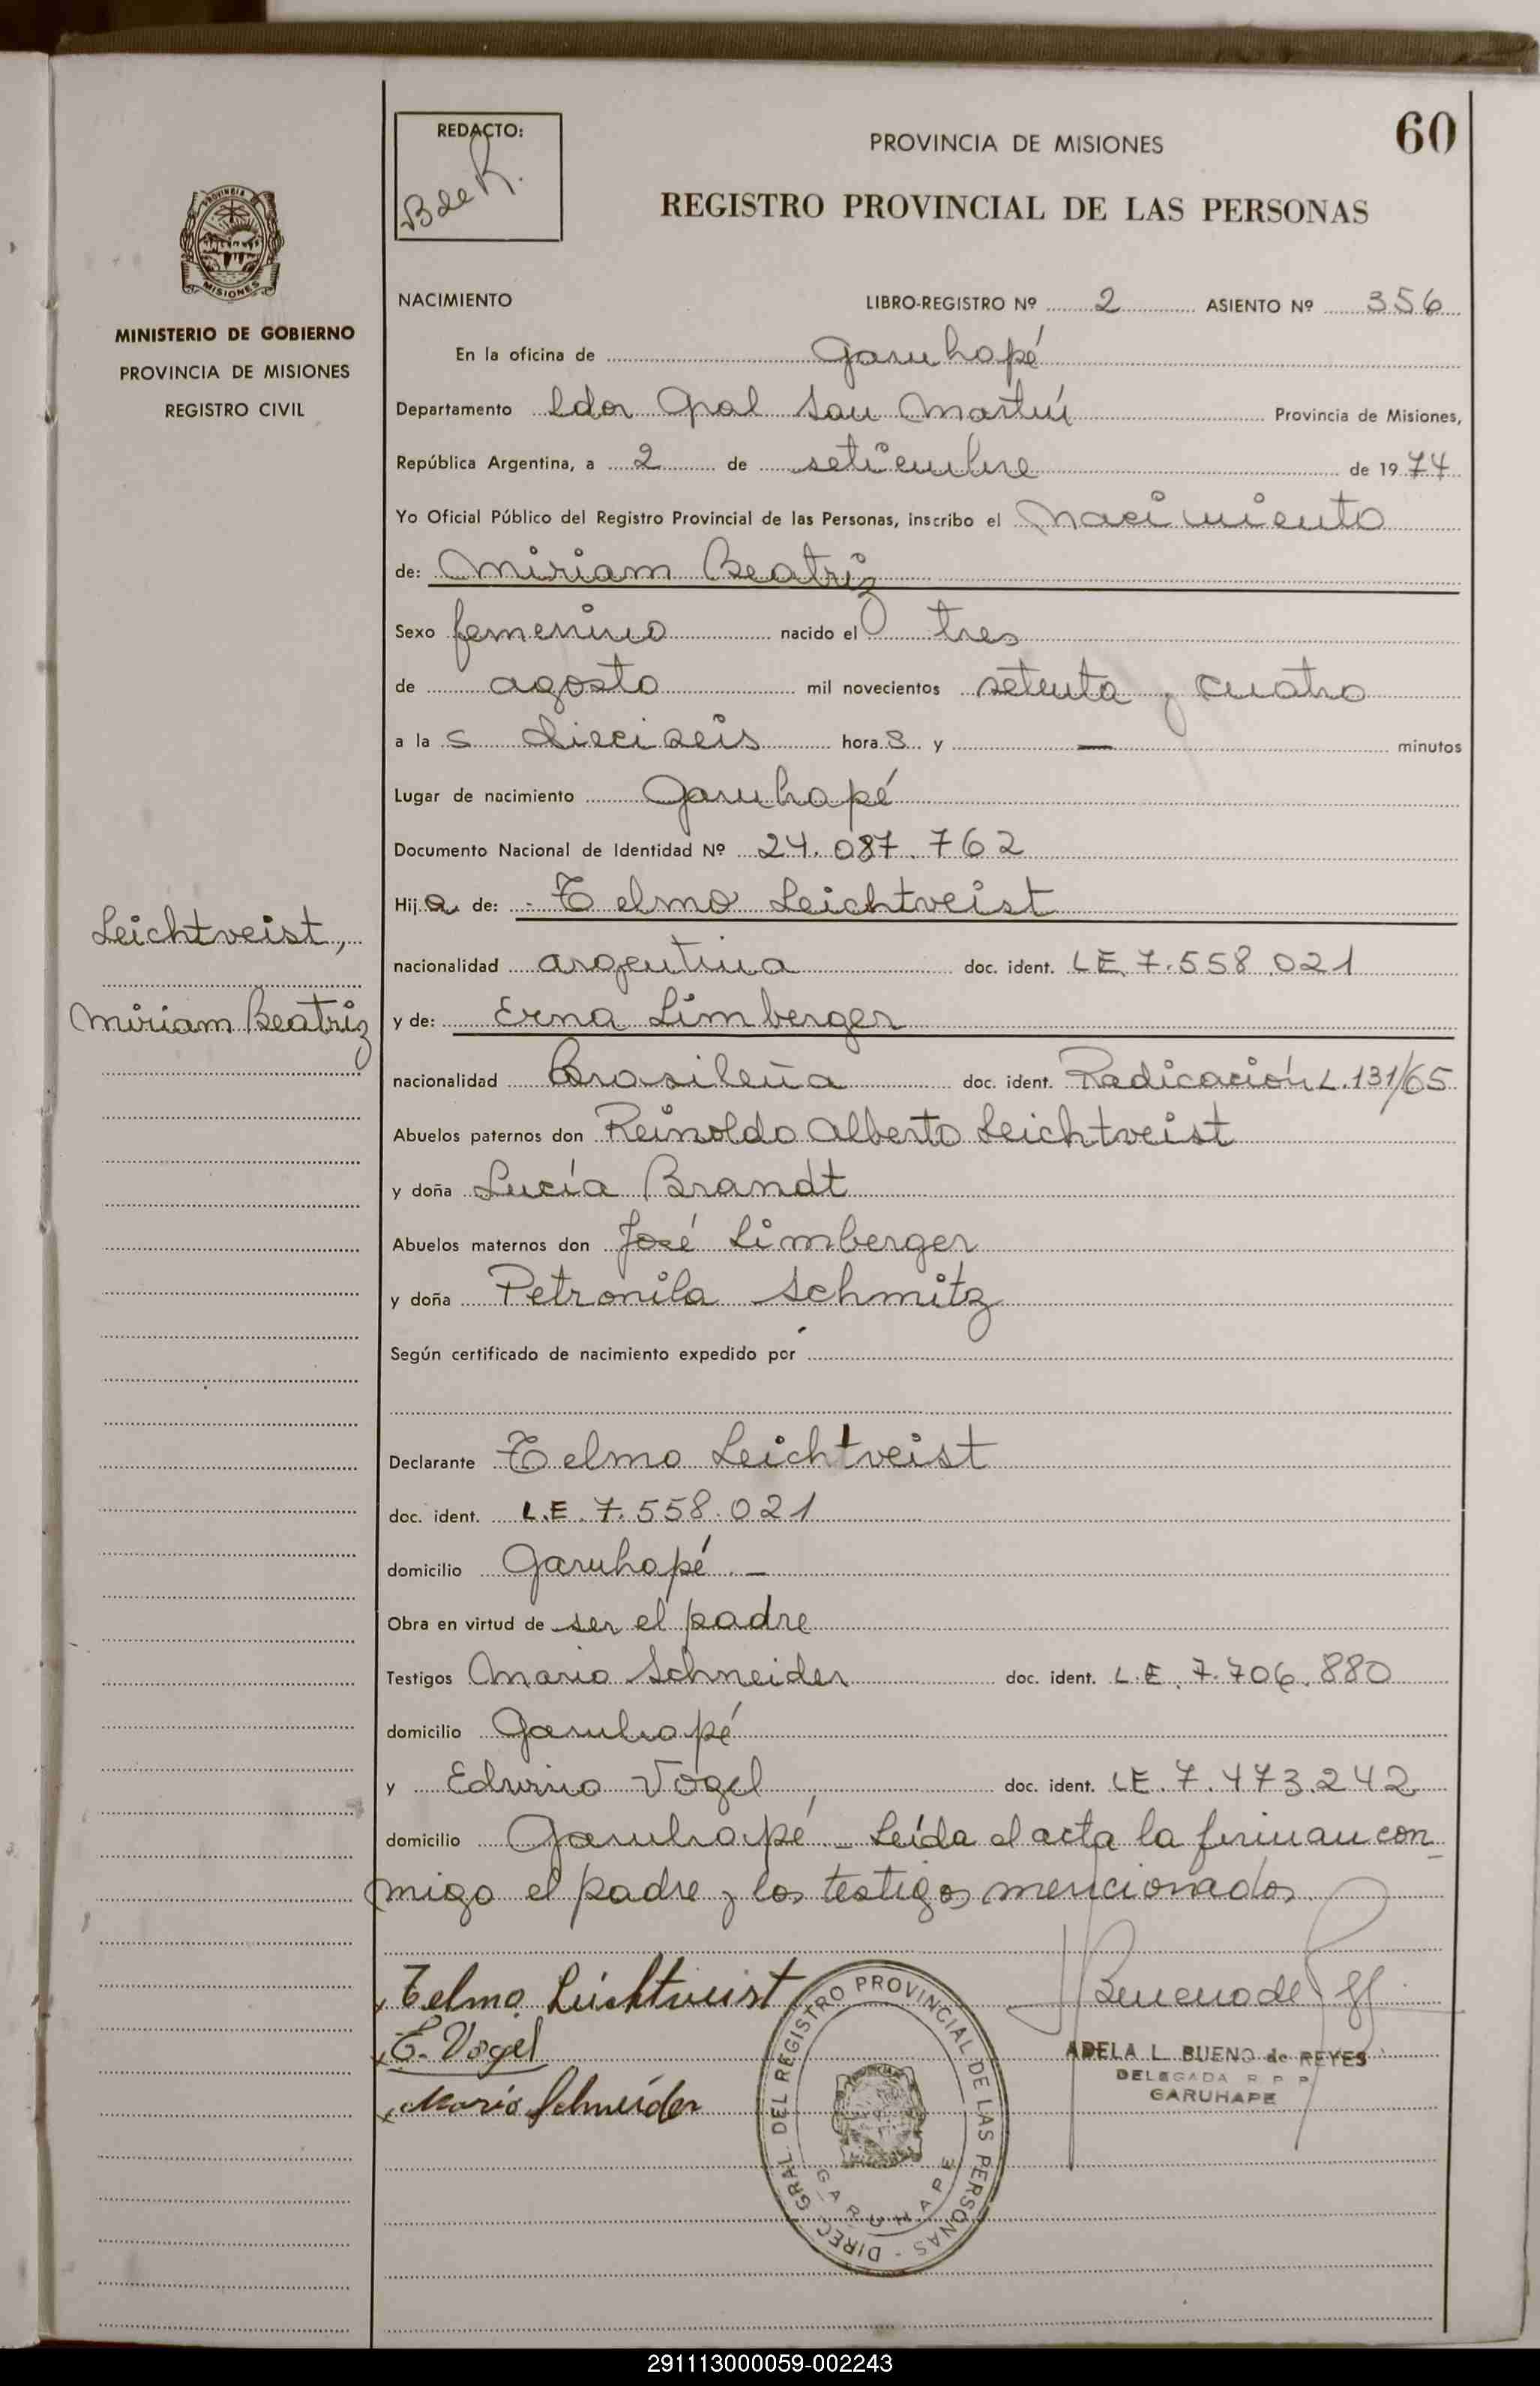 REDACTO:
B de R.
PROVINCIA DE MISIONES
60
REGISTRO PROVINCIAL DE LAS PERSONAS
PROVINCIA
MISIONES
MINISTERIO DE GOBIERNO
PROVINCIA DE MISIONES
REGISTRO CIVIL
NACIMIENTO LIBRO-REGISTRO Nº 2 ASIENTO Nº 356
En la oficina de Garuhapé
Departamento Ldor Gral San Martín Provincia de Misiones,
República Argentina, a 2 de setiembre de 1974
Yo Oficial Público del Registro Provincial de las Personas, inscribo el Nacimiento
de: Miriam Beatriz
Sexo femenino nacido el tres
de agosto mil novecientos setenta y cuatro
a la s dieciseis hora s y — minutos
Lugar de nacimiento Garuhapé
Documento Nacional de Identidad Nº 24.087.762
Hij a de: - Telmo Leichtveist
Leichtveist,
nacionalidad argentina doc. ident. LE. 7.558.021
Miriam Beatriz
y de: Erna Limberger
nacionalidad Brasileña doc. ident. Radicación L.131/65
Abuelos paternos don Reinoldo Alberto Leichtveist
y doña Lucía Brandt
Abuelos maternos don José Limberger
y doña Petronila Schmitz
Según certificado de nacimiento expedido por
Declarante Telmo Leichtveist
doc. ident. L.E. 7.558.021
domicilio Garuhapé.-
Obra en virtud de ser el padre
Testigos Mario Schneider doc. ident. L.E. 7.706.880
domicilio Garuhapé
y Edvino Vogel, doc. ident. LE. 7.473.242
domicilio Garuhapé - Leída el acta la firman con-
migo el padre y los testigos mencionados
Telmo Leichtveist
E. Vogel
Mario Schneider
DIREC. GRAL. DEL REGISTRO PROVINCIAL DE LAS PERSONAS -
GARUHAPE
Bueno de
ADELA L. BUENO de REYES
DELEGADA R P P
GARUHAPE
291113000059-002243